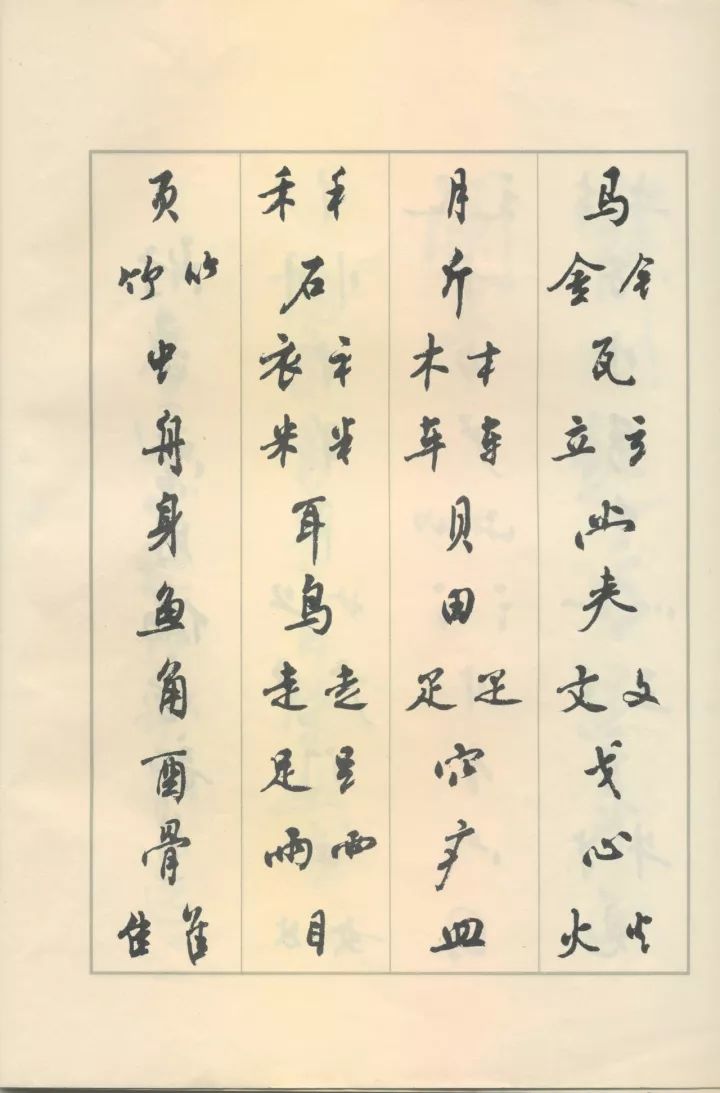 马 金 钅 瓦 立 立 文 攵 戈 心 火 火
月 斤 木 木 车 车 贝 田 疋 疋 穴 疒 皿
禾 禾 石 衣 衤 米 米 耳 鸟 走 走 足 𧾷 雨 雨 目
页 竹 竹 虫 舟 身 鱼 角 酉 骨 隹 隹